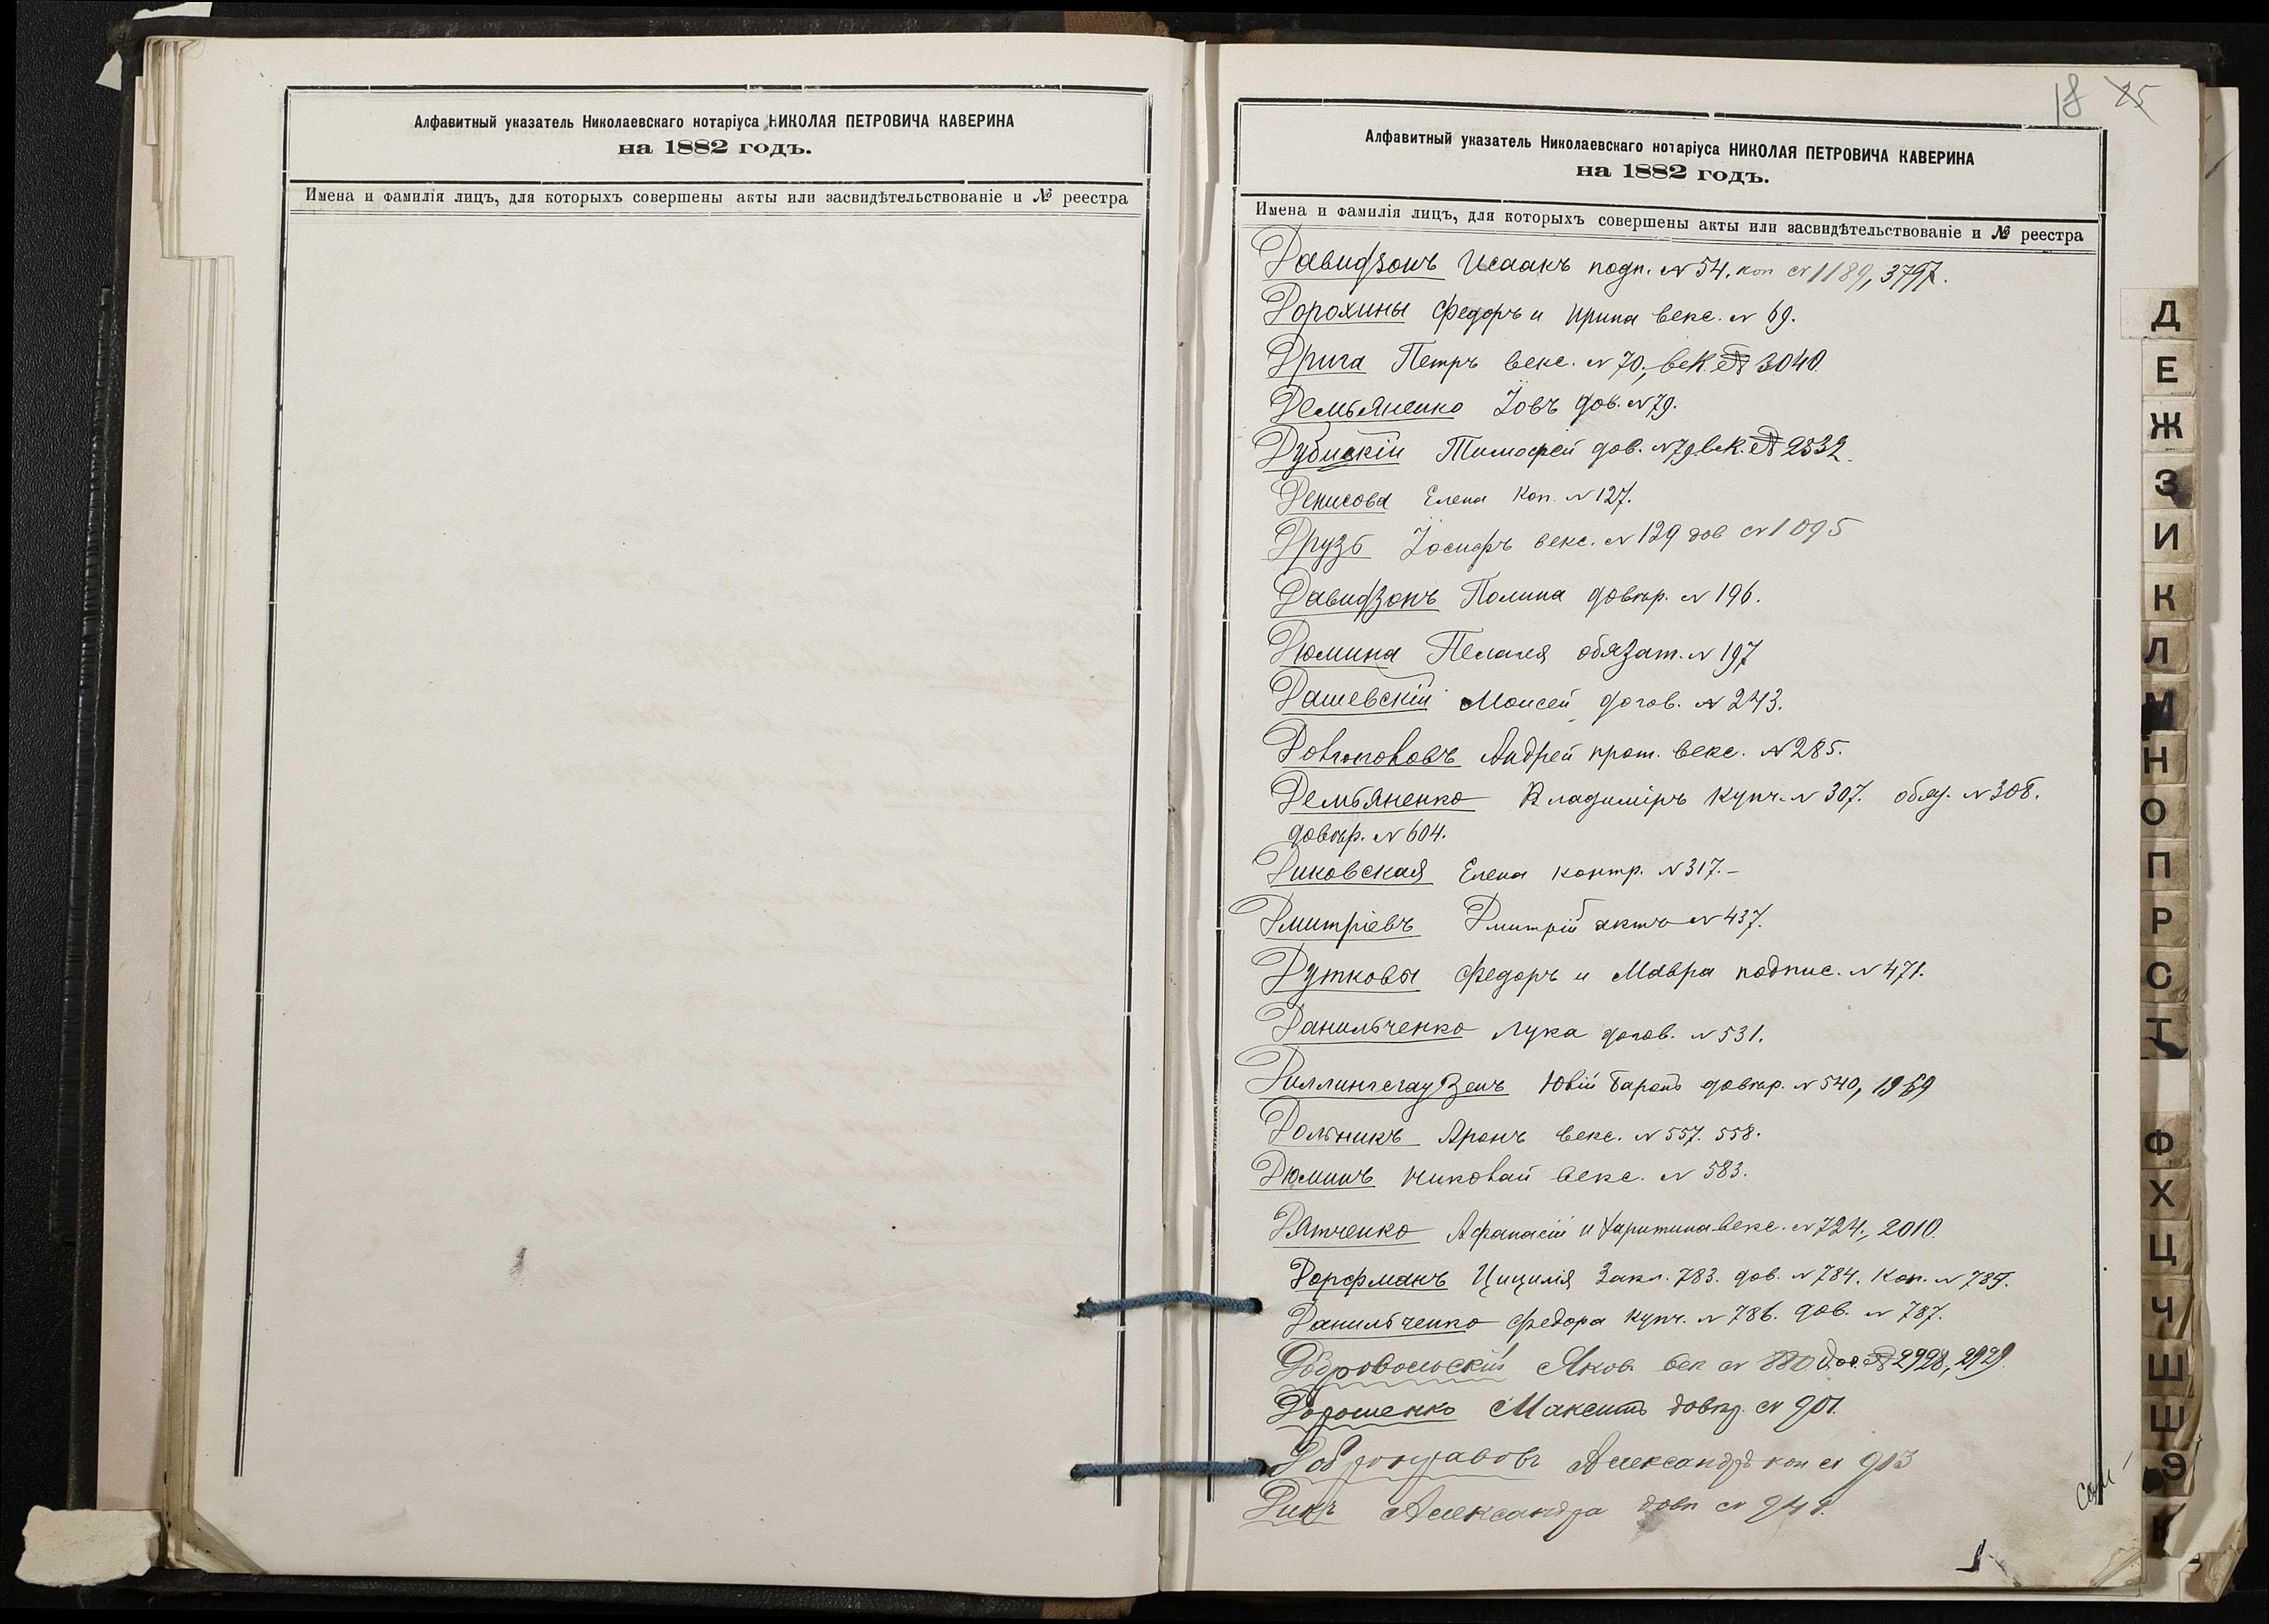 Алфавитный указатель Николаевскаго нотаріуса НИКОЛАЯ ПЕТРОВИЧА КАВЕРИНА
на 1882 годъ.
Имена и фамилія лицъ, для которыхъ совершены акты или засвидѣтельствованіе и № реестра
18 25
Алфавитный указатель Николаевскаго нотаріуса НИКОЛАЯ ПЕТРОВИЧА КАВЕРИНА
на 1882 годъ.
Имена и фамилія лицъ, для которыхъ совершены акты или засвидѣтельствованіе и № реестра
Давидзонъ Исаакъ подп. № 54. коп № 1189, 3797.
Дорохины Федоръ и Ирина векс. № 69.
Дрига Петръ векс. № 70., век. № 3040.
Демьяненко Іовъ дов. № 79.
Дубискій Тимофей дов. № 79. век. № 2532.
Денисова Елена Коп. № 127.
Друзь Іосифъ векс. № 129 дов № 1095
Давидзонъ Полина довѣр. № 196.
Дюмина Пелагея обязат. № 197
Дашевскій Моисей догов. № 243.
Андрей прот. векс. № 285.
Демьяненко Владиміръ купч. № 307. обяз. № 308.
довѣр. № 604.
Диковская Елена контр. № 317.
Дмитріевъ Дмитрій актъ № 437.
Дутковы Федоръ и Мавра подпис. № 471.
Данильченко Лука догов. № 531.
Диллингсгаузенъ Юлій Баронъ довѣр. № 540, 1959
Дольникъ Аронъ векс. № 557. 558.
Дюминъ Николай векс. № 583.
Дятченко Афанасій и Харитина векс. № 724., 2010.
Дорфманъ Цицилія Закл. 783. дов. № 784. Коп. № 785.
Данильченко Федора купч. № 786. дов. № 787.
Добровольскій Яков. век № 880 дов. № 2928, 2929.
Дорошенко Максимъ довѣр. № 901.
Александръ коп № 913
Дикъ Александра довѣ № 941.
Д
Е
Ж
З
И
К
Л
М
Н
О
П
Р
С
Т
Ф
Х
Ц
Ч
Ш
Щ
Э